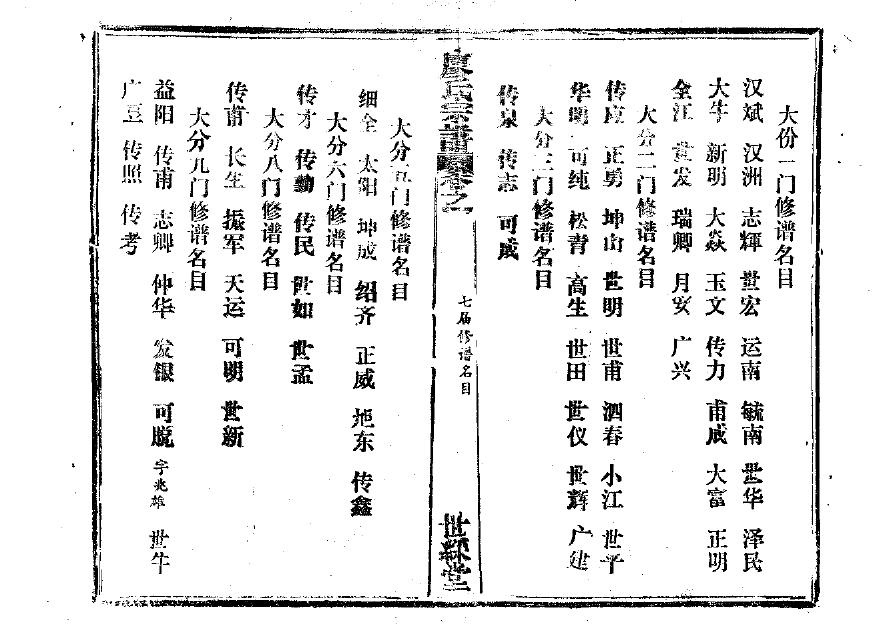 大份一门修谱名目
汉斌 汉洲 志輝 世宏 运南 毓南 世华 泽民
大牛 新明 大焱 玉文 传力 甫成 大富 正明
全江 世发 瑞卿 月安 广兴
大分二门修谱名目
传应 正勇 坤山 世明 世甫 泗春 小江 世平
华明 可纯 松青 高生 世田 世仪 世辉 广建
大分三门修谱名目
传泉 传志 可成
廖氏宗譜 卷之一
七届修谱名目
世綵堂
大分五门修谱名目
细全 太阳 坤成 绍齐 正威 地东 传鑫
大分六门修谱名目
传才 传勤 传民 世如 世孟
大分八门修谱名目
传甫 长生 振军 天运 可明 世新
大分九门修谱名目
益阳 传甫 志卿 仲华 发银 可脱 字兆雄 世牛
广豆 传照 传考